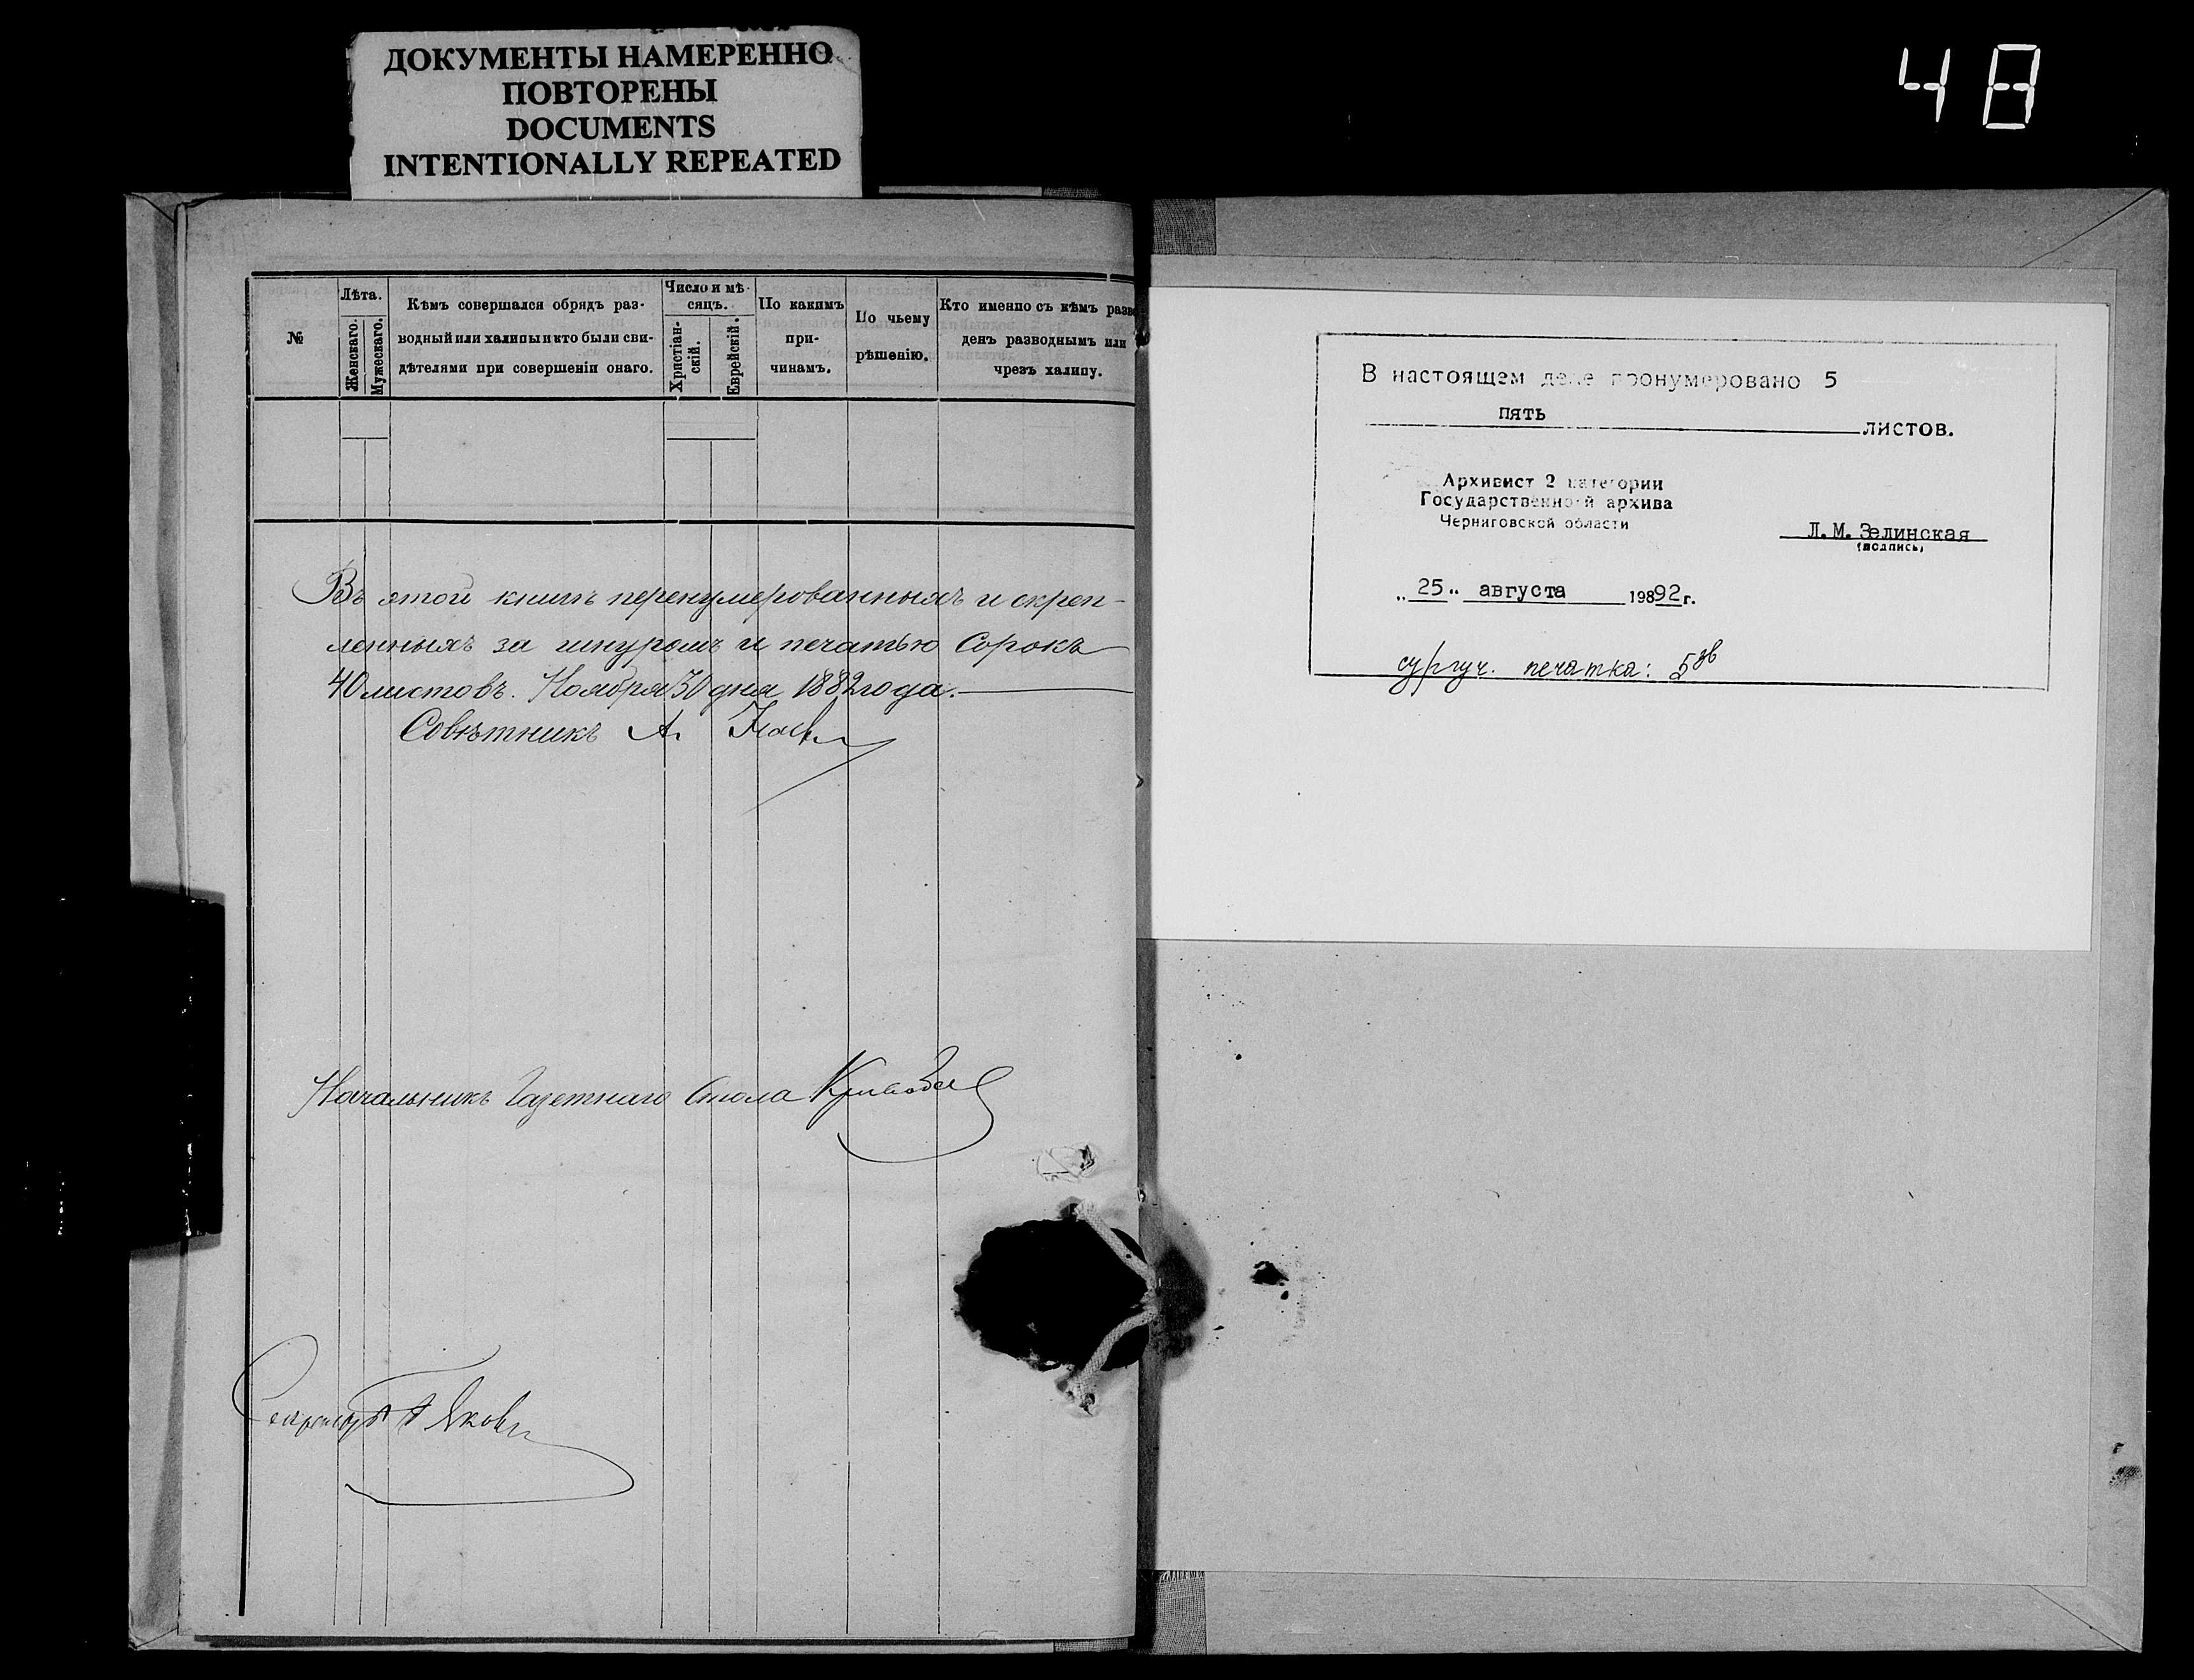 ДОКУМЕНТЫ НАМЕРЕННО
ПОВТОРЕНЫ
DOCUMENTS
INTENTIONALLY REPEATED
48
№
Лѣта.
Женскаго.
Мужескаго.
Кѣмъ совершался обрядъ раз-
водный или халицы и кто были сви-
дѣтелями при совершеніи онаго.
Число и мѣ-
сяцъ.
Христіан-
скій.
Еврейскій.
По какимъ
при-
чинамъ.
По чьему
рѣшенію.
Кто именно съ кѣмъ разве
денъ разводнымъ или
чрезъ халицу.
Въ этой книгѣ перенумерованныхъ и скреп-
ленныхъ за шнуромъ и печатью Сорокъ
40 листовъ. Ноября 30 дня 1882 года.
Совѣтникъ А.
Начальникъ Газетнаго Стола
Секретарь
В настоящем деле пронумеровано 5
пять
листов.
Архивист 2 категории
Государственной архива
Черниговской области
Л.М. Зелинская
(подпись)
„25" августа 19892г.
сургуч. печатка: 5зв